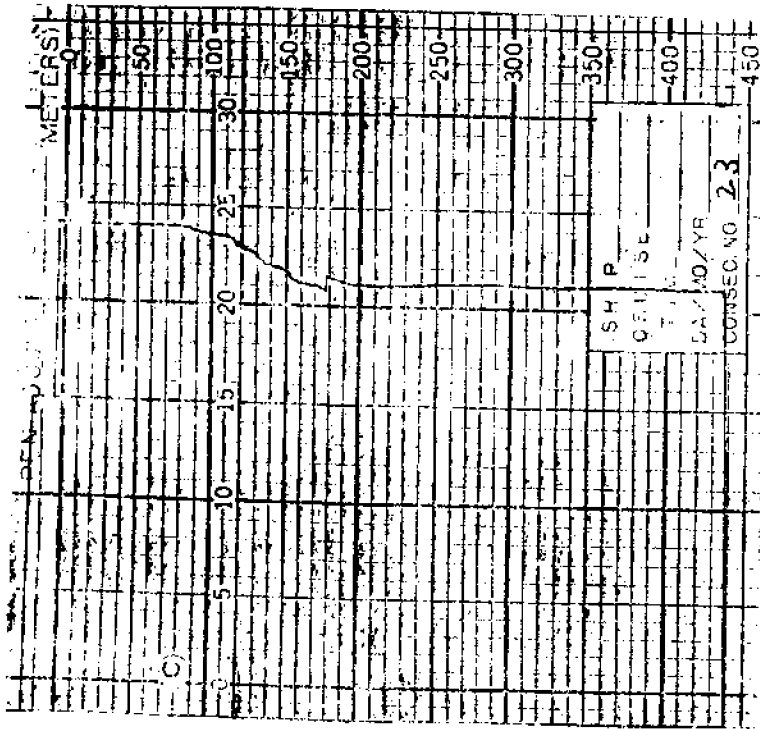 METERS)
0 50 100 150 200 250 300 350 400 450
30
25
20
15
10
5
0
SHIP
CRUISE
DA/MO/YR
CONSEC. NO 23